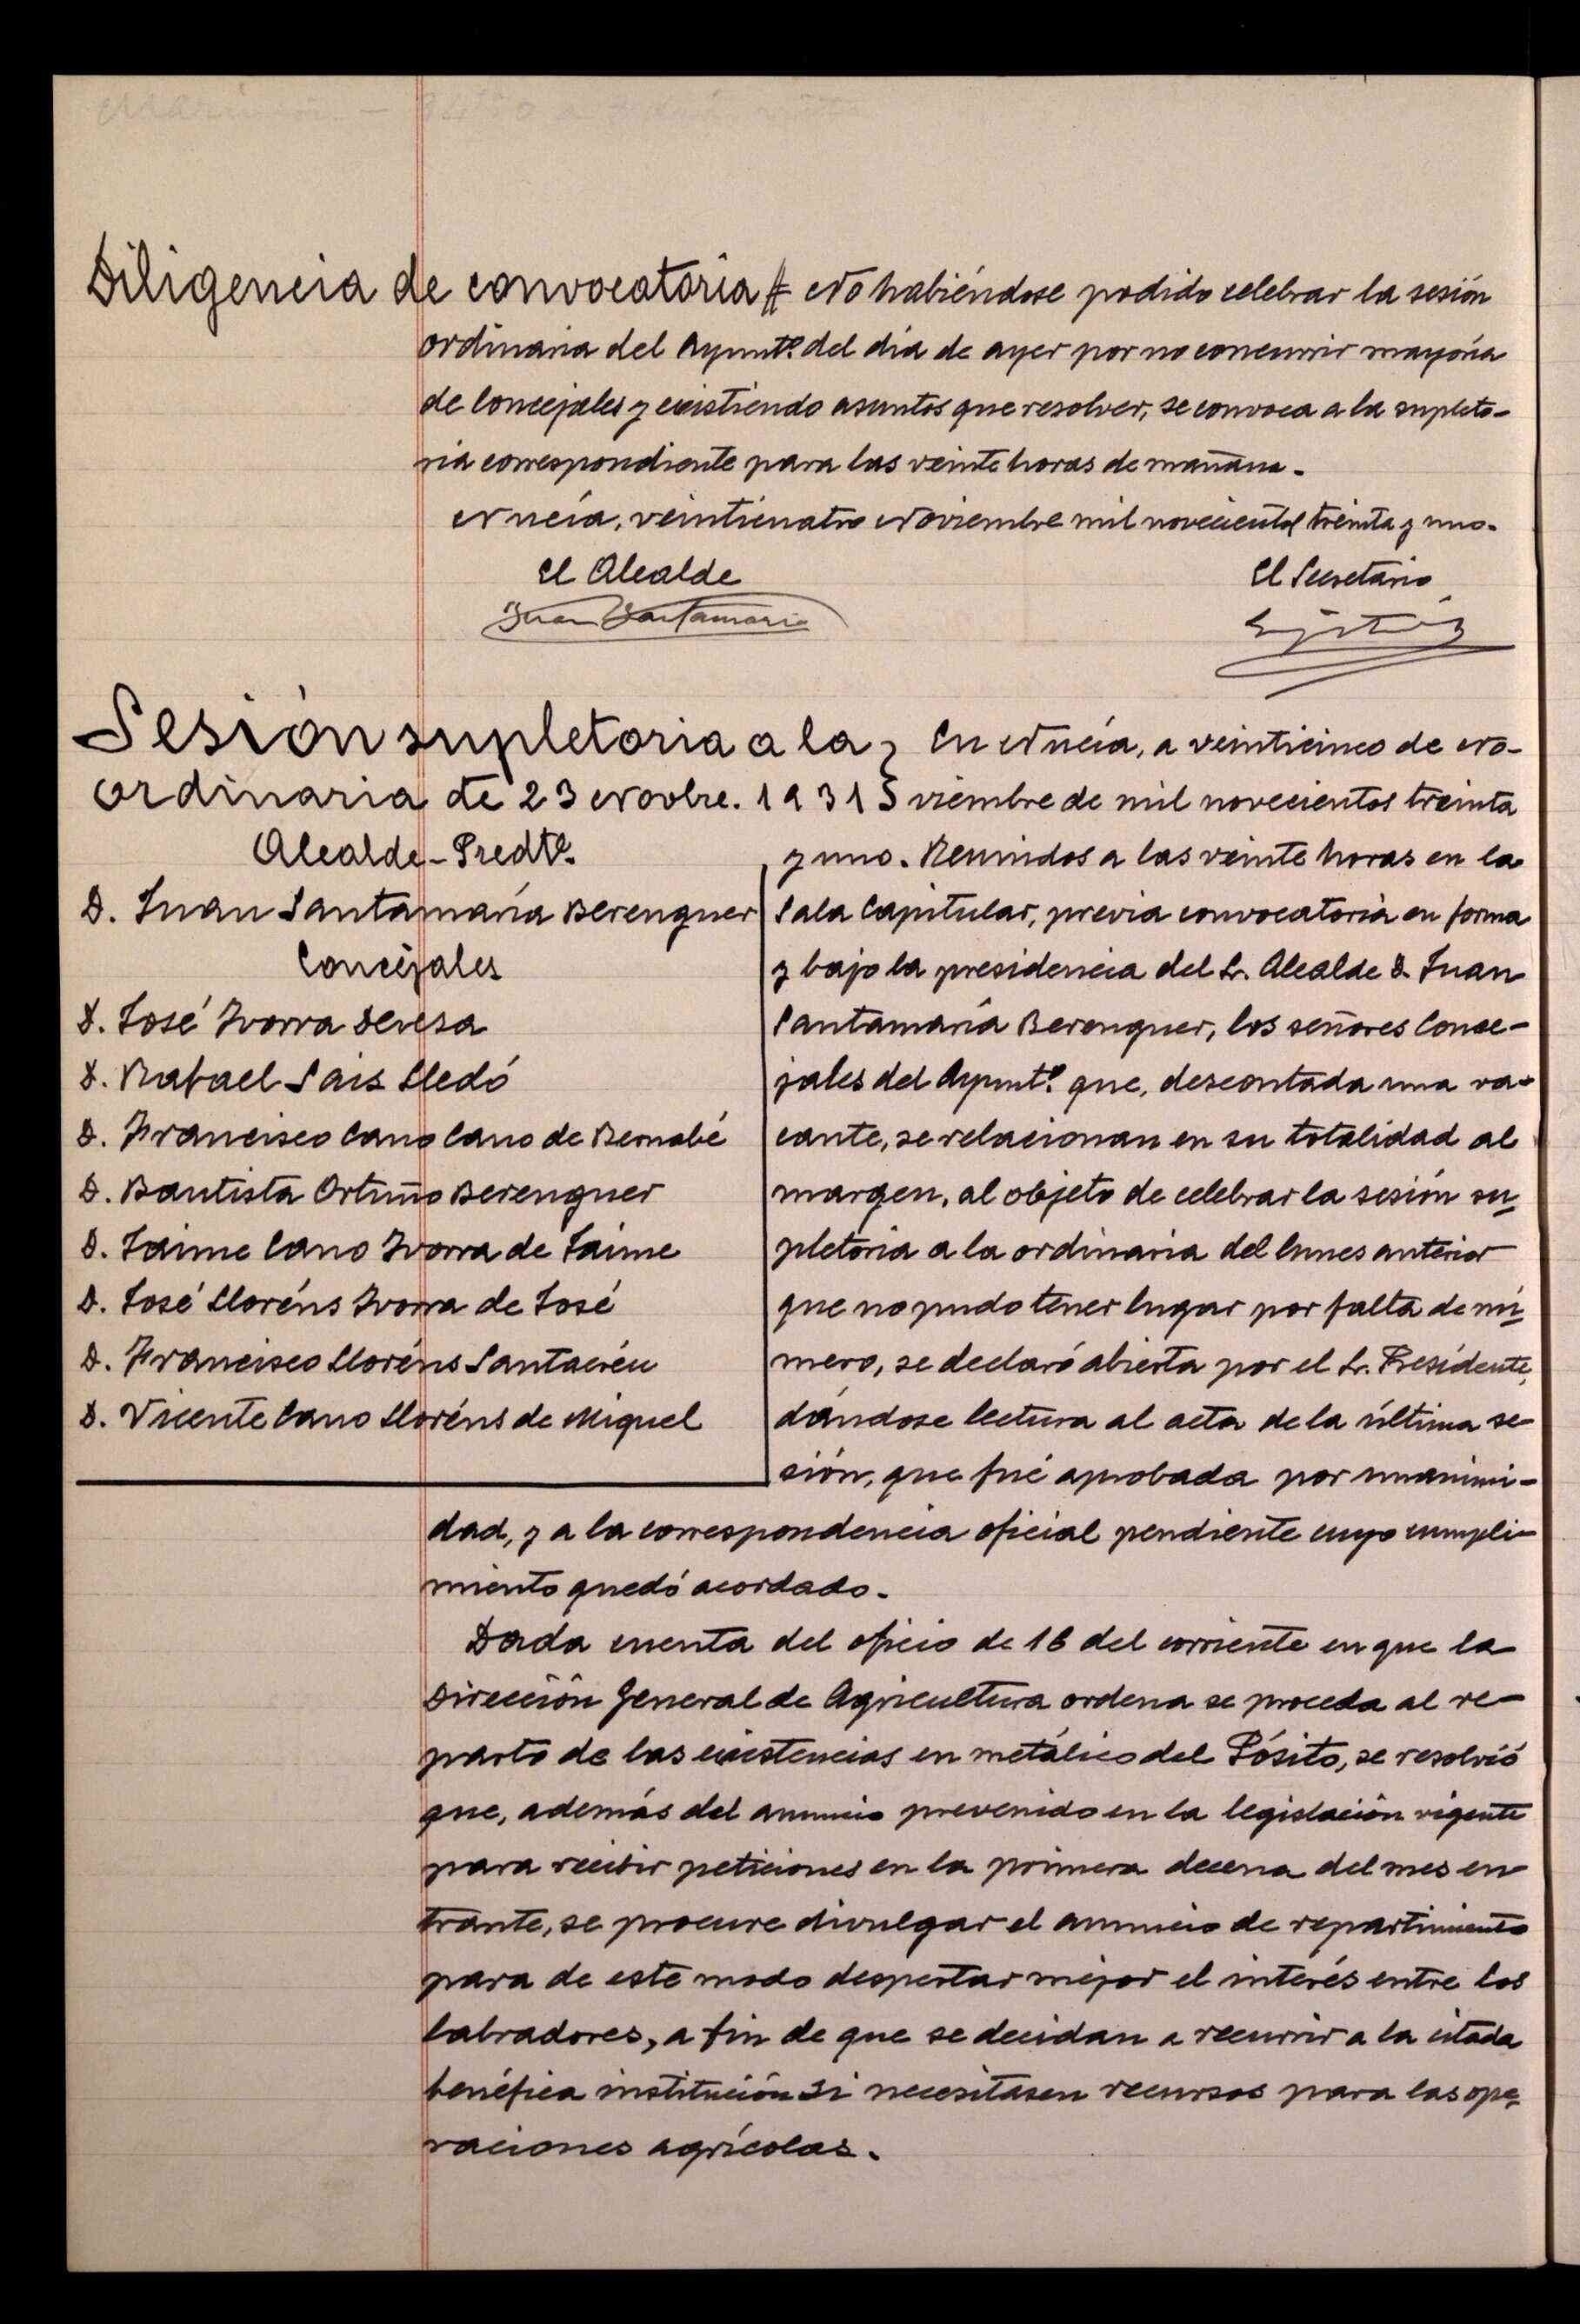 Diligencia de convocatoria # No habiéndose podido celebrar la sesión
ordinaria del Ayuntº. del día de ayer por no concurrir mayoría
de Concejales y existiendo asuntos que resolver, se convoca a la supleto-
ria correspondiente para las veinte horas de mañana.
Nucía, veinticuatro Noviembre mil novecientos treinta y uno.
El Alcalde
El Secretario
Juan Santamaria
Sesión supletoria a la
ordinaria de 23 Novbre. 1931
Alcalde-Predte.
D. Juan Santamaría Berenguer
Concejales
D. José Ivorra Devesa
D. Rafael Sais Lledó
D. Francisco Cano Cano de Bernabé
D. Bautista Ortuño Berenguer
D. Jaime Cano Ivorra de Jaime
D. José Lloréns Ivorra de José
D. Francisco Lloréns Santacréu
D. Vicente Cano Lloréns de Miguel
En Nucía, a veinticinco de No-
viembre de mil novecientos treinta
y uno. Reunidos a las veinte horas en la
Sala Capitular, previa convocatoria en forma
y bajo la presidencia del Sr. Alcalde D. Juan
Santamaría Berenguer, los señores Conce-
jales del Ayuntº. que, descontada una va-
cante, se relacionan en su totalidad al
margen, al objeto de celebrar la sesión su-
pletoria a la ordinaria del lunes anterior
que no pudo tener lugar por falta de nú-
mero, se declaró abierta por el Sr. Presidente,
dándose lectura al acta de la última se-
sión, que fué aprobada por unanimi-
dad, y a la correspondencia oficial pendiente cuyo cumpli-
miento quedó acordado.
Dada cuenta del oficio de 16 del corriente en que la
Dirección General de Agricultura ordena se proceda al re-
parto de las existencias en metálico del Pósito, se resolvió
que, además del anuncio prevenido en la legislación vigente
para recibir peticiones en la primera decena del mes en-
trante, se procure divulgar el anuncio de repartimiento
para de este modo despertar mejor el interés entre los
labradores, a fin de que se decidan a recurrir a la citada
benéfica institución si necesitasen recursos para las ope-
raciones agrícolas.